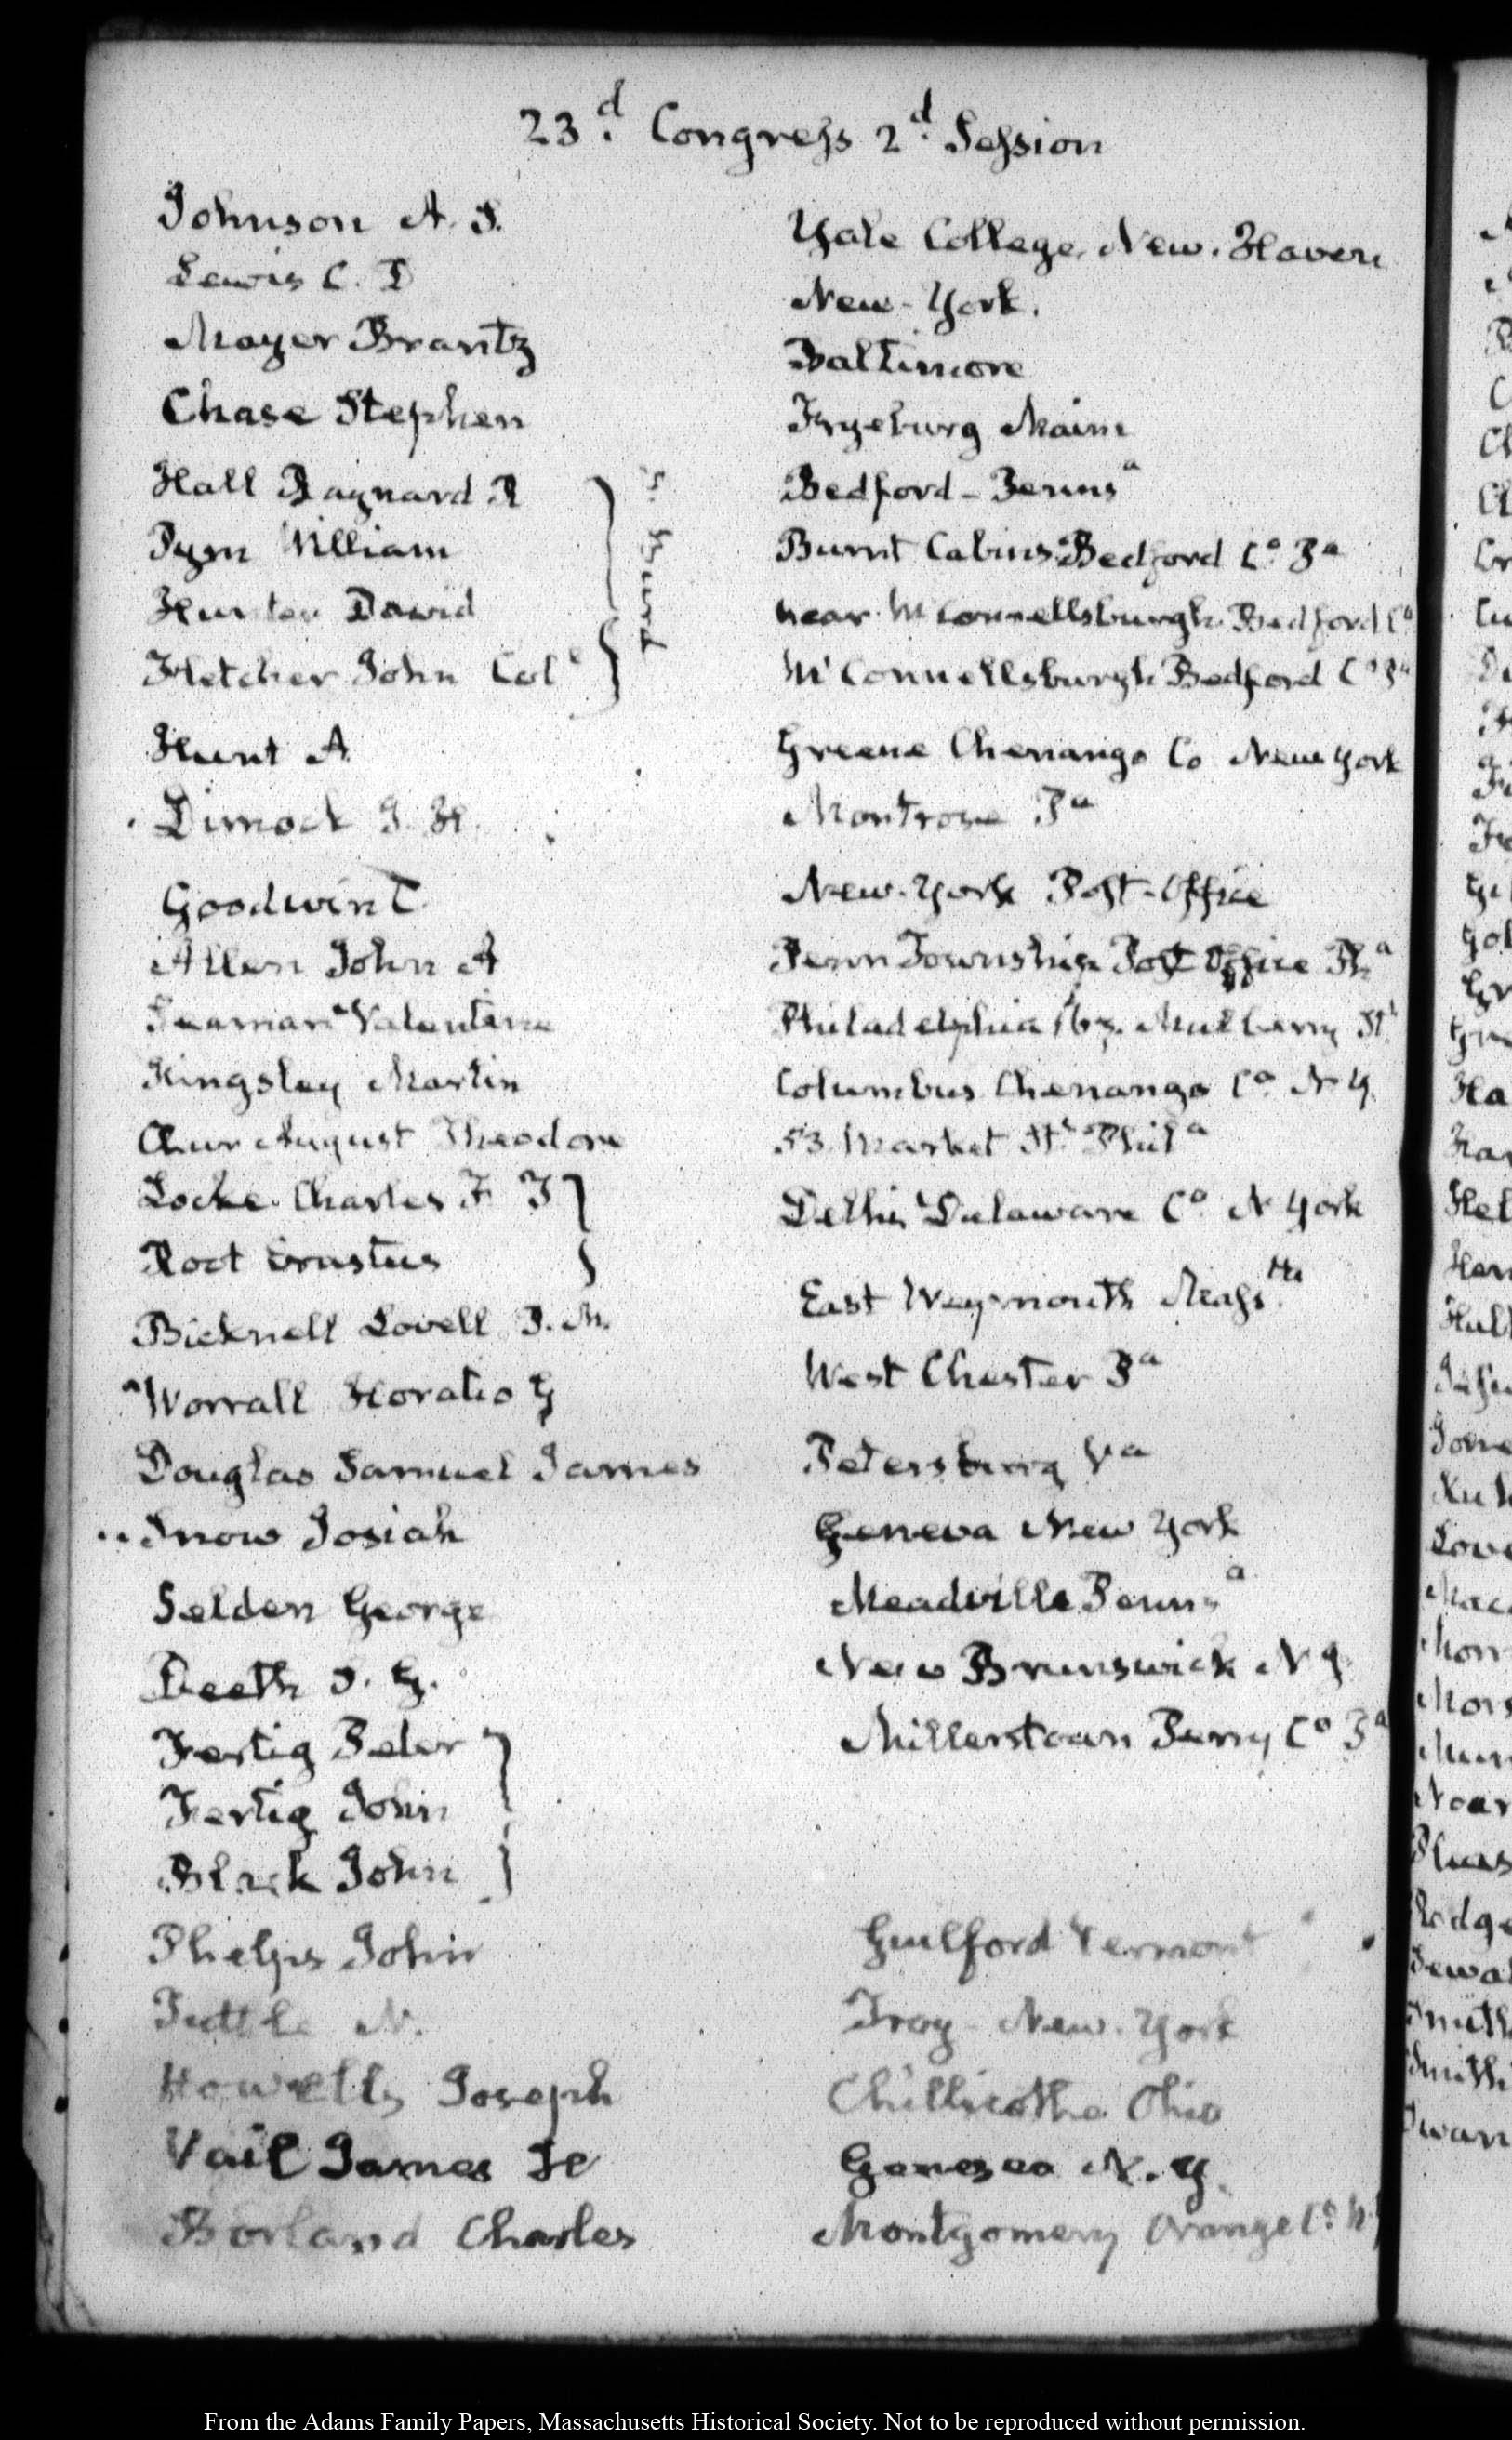 23.d Congress 2.d Session
Johnson A. S. Yale College, New-Haven
Lewis C. D New-York.
Mayer Brantz Baltimore
Chase Stephen Fryeburg Maine
Hall Baynard R Bedford - Penns a
Pym William Burnt Cabins Bedford Co. Pa
Hunter David near McConnellsburgh Bedford Co
Fletcher John Col McConnellsburgh Bedford Co Pa
Hunt A. Greene Chenango Co New York
Dimock J. H. Montrose Pa
Goodwin T. New-York Post-Office
Allen John A Penn Township Post Office Pha
Valentine Philadelphia Mulberry St
Kingsley Martin Columbus Chenango Co. N Y.
Chur August Theodore 53 Market St. Phila
Locke Charles F. Delhi Delaware Co. N York
Root Erastus
Bicknell Lovell East Weymouth Mass.tts
Worrall Horatio G West Chester Pa
Douglas Samuel James Petersburg Va
Snow Josiah Geneva New York
Selden George Meadville Penns a
Deeth S. G. New Brunswick N J
Fertig Peter Millerstown Perry Co Pa
Fertig John
Black John
Phelps John Guilford Vermont
Tuttle N. Troy - New-York
Howells Joseph Chillicothe Ohio
Vail James H Geneseo N. Y.
Borland Charles Montgomery Orange Co. N Y
From the Adams Family Papers, Massachusetts Historical Society. Not to be reproduced without permission.